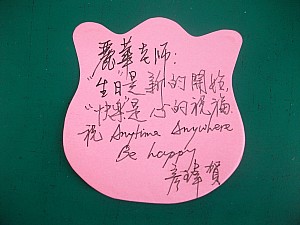 麗華老師:
"生日"是新的開始,
"快樂"是心的祝福.
祝 Anytime Anywhere
Be happy
彥瑋賀